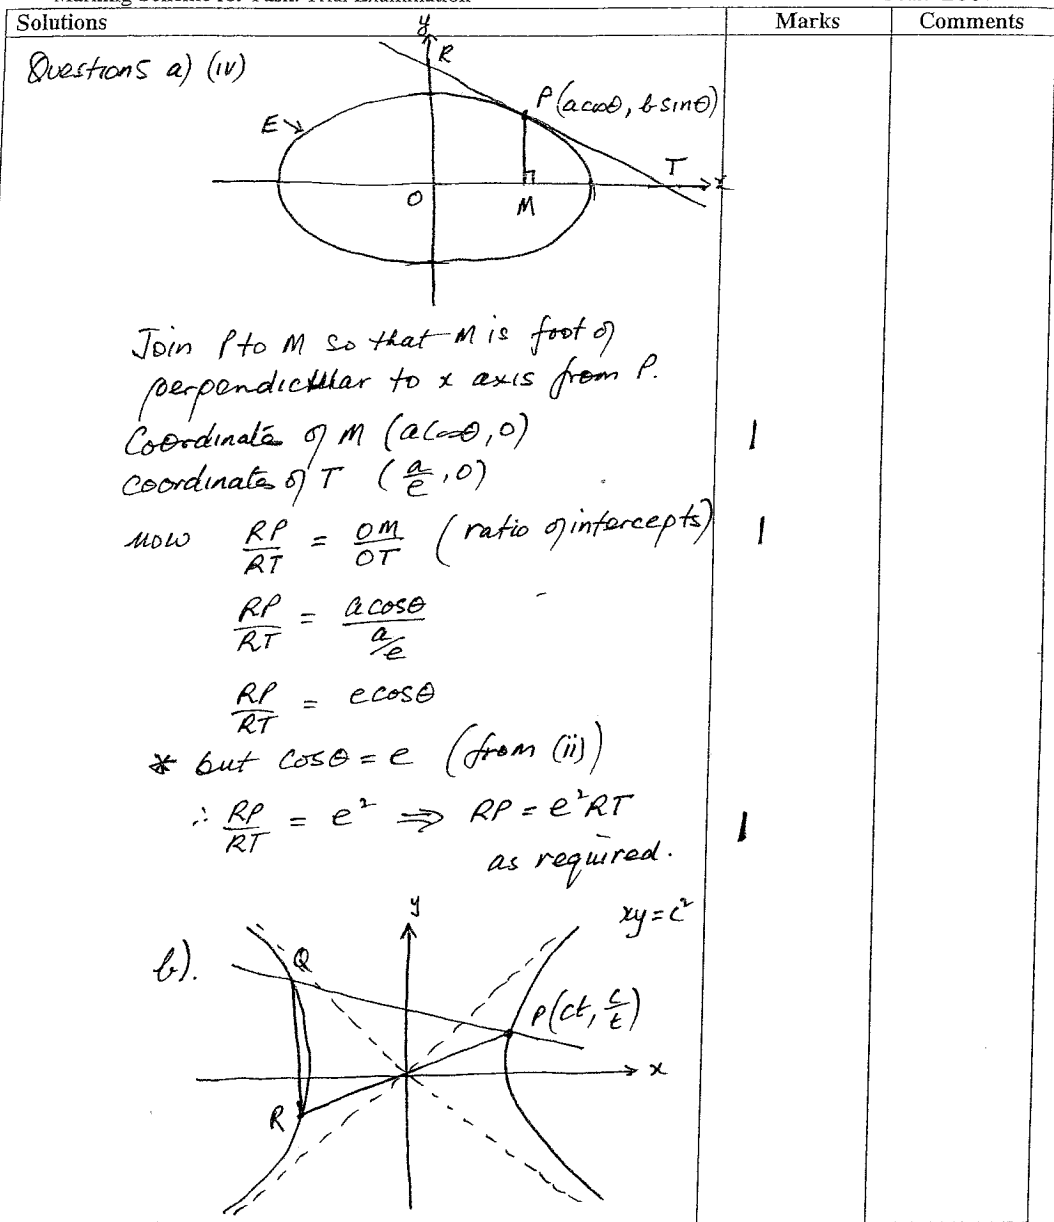 Solutions Marks Comments
Questions a) (iv)
y
R
P(acosθ, bsinθ)
E
T
x
O
M
Join P to M so that M is foot of
perpendicular to x axis from P.
Coordinates of M (acosθ, 0) 1
coordinates of T (a/e, 0)
now RP/RT = OM/OT (ratio of intercepts) 1
RP/RT = acosθ / a/e
RP/RT = ecosθ
* but cosθ = e (from (ii))
∴ RP/RT = e² ⇒ RP = e²RT 1
as required.
y
xy = c²
b).
Q
P(ct, c/t)
x
R